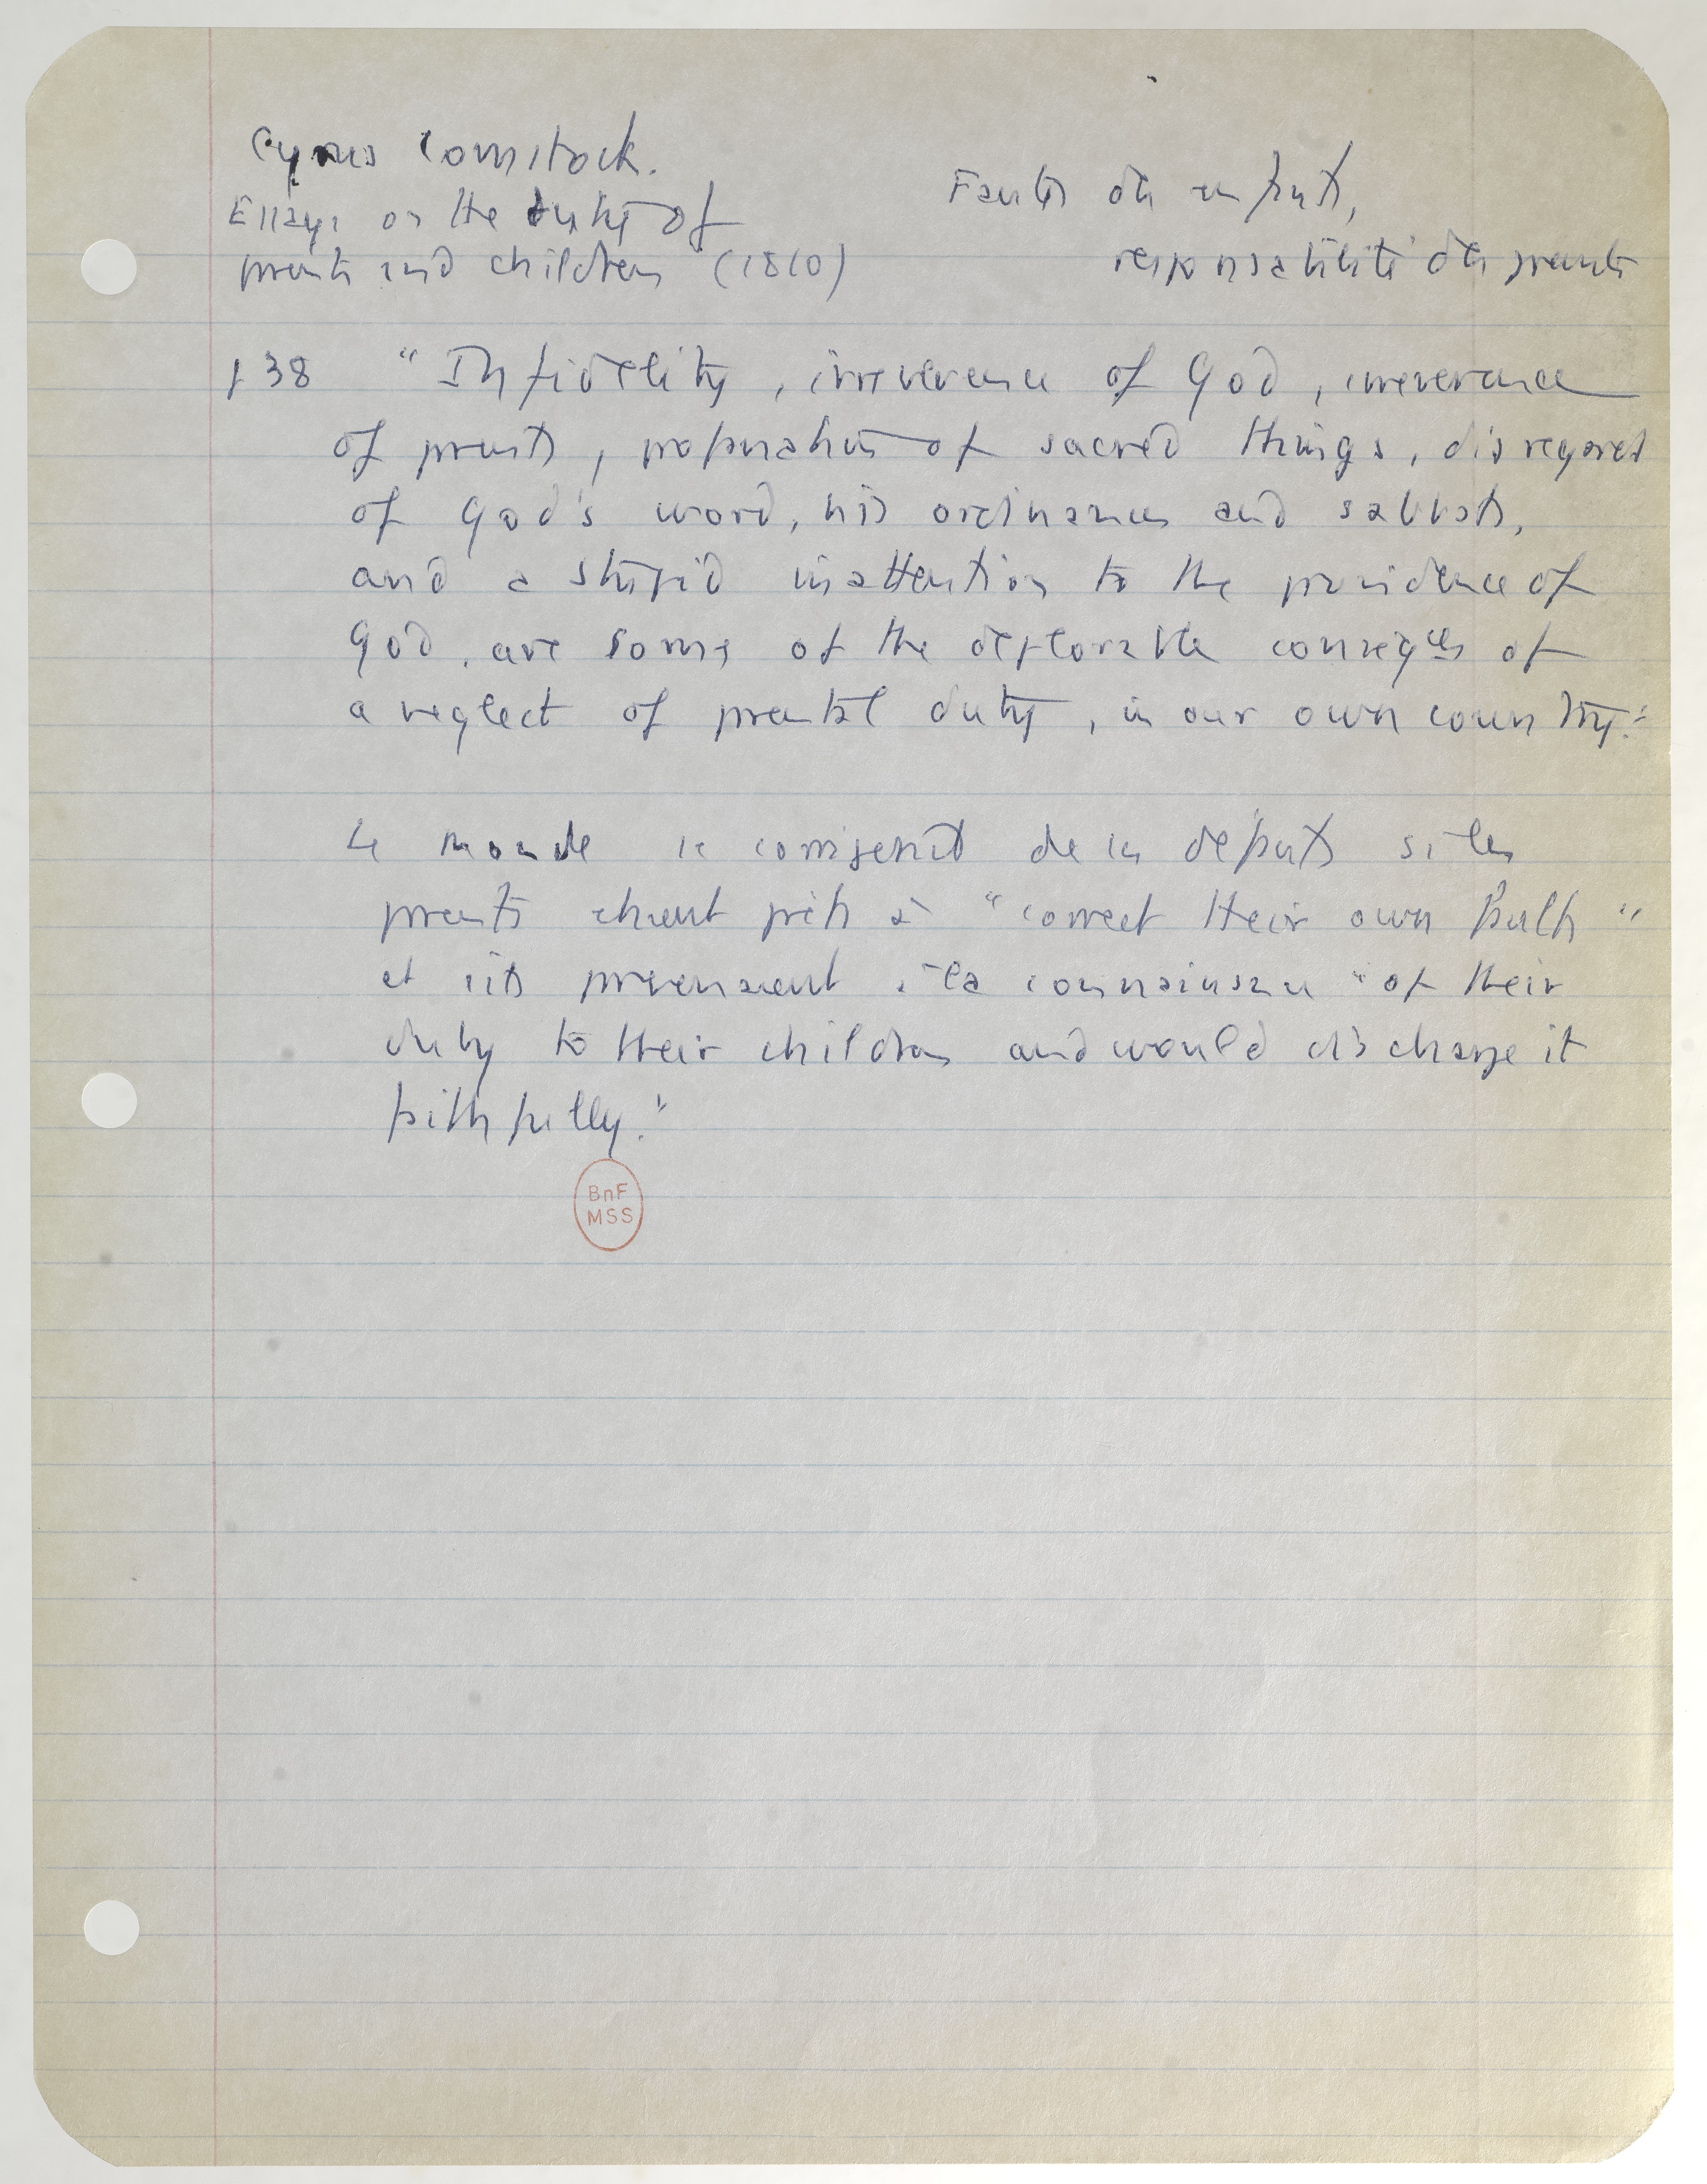 Cyrus Comstock.
Essays on the duty of
parents and children (1810)
Fautes des enfants,
responsabilité des parents
p 38 "Infidelity, irreverence of God, irreverence
of parents, profanation of sacred things, disregard
of God's word, his ordinances and sabbaths,
and a stupid inattention to the providence of
God, are some of the deplorable conseq.ces of
a neglect of parental duty, in our own country."
Le monde se corrigerait de ces défauts si les
parents étaient prêts à "correct their own faults"
et s'ils parvenaient à la connaissance "of their
duty to their children and would discharge it
faithfully."
BnF
MSS